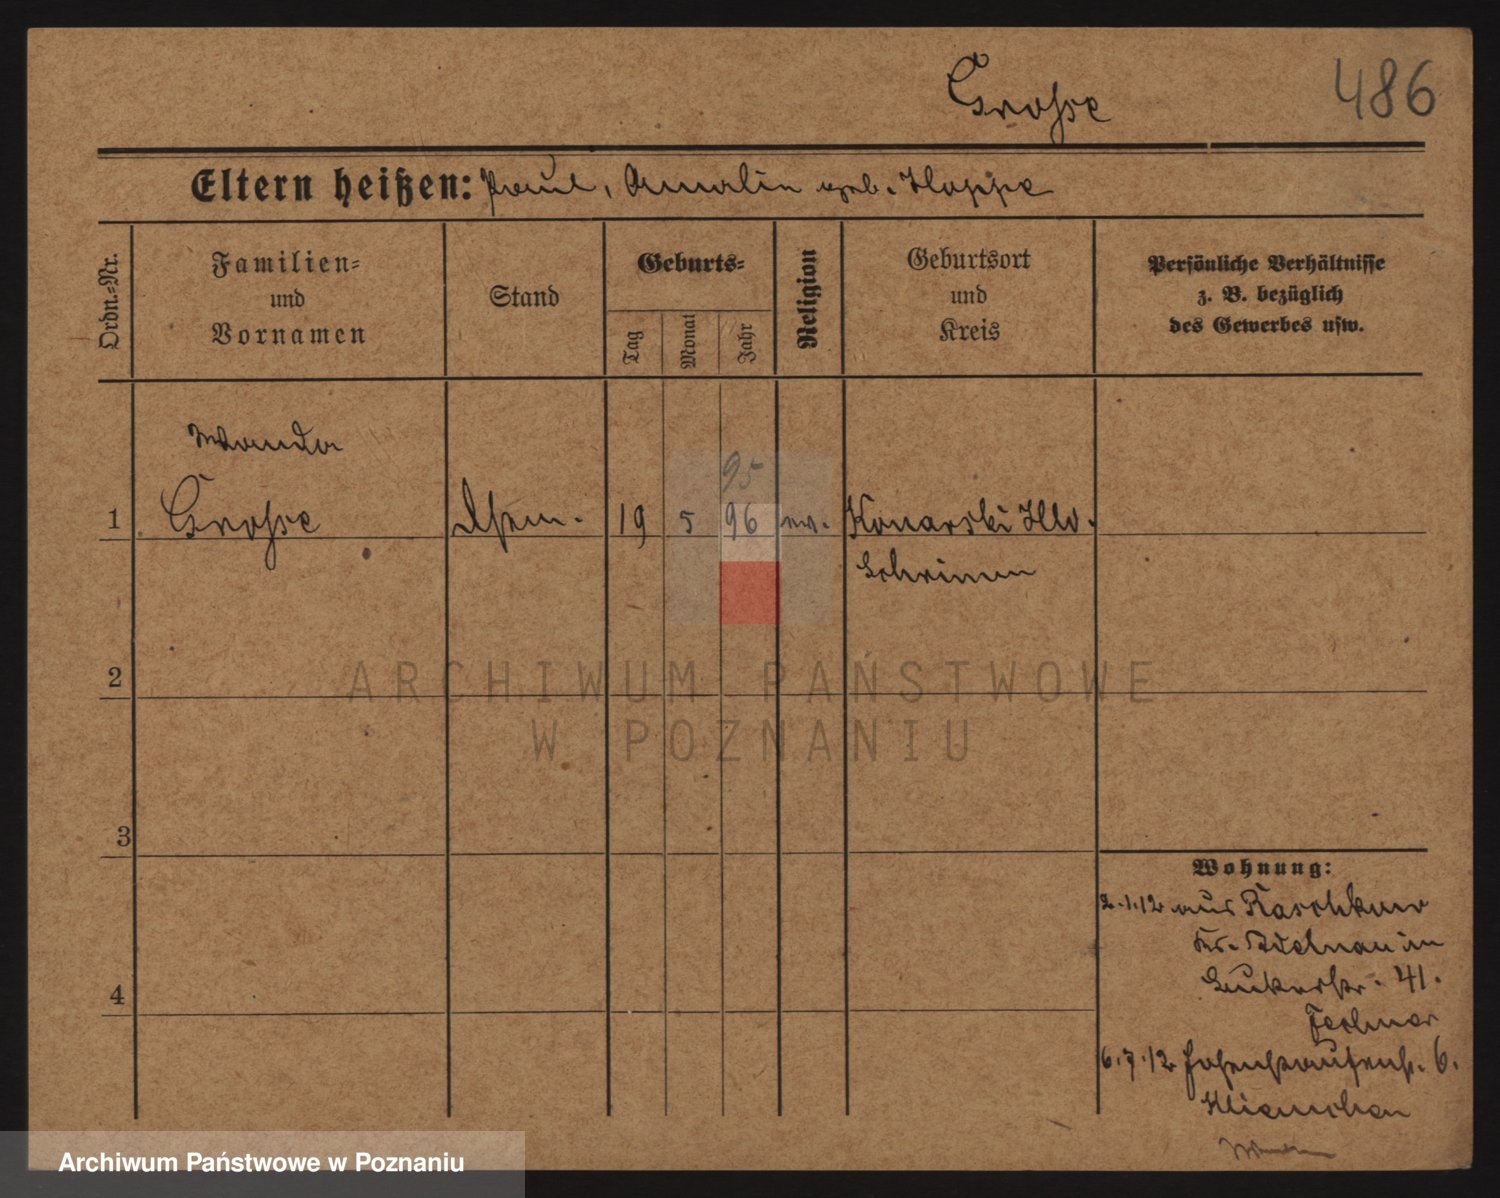 Grosse
486
Eltern heißen: Paul, Amalie geb. Hoppe
Ordn.-Nr.
Familien-
und
Vornamen
Stand
Geburts-
Tag
Monat
Jahr
Religion
Geburtsort
und
Kreis
Persönliche Verhältnisse
z. B. bezüglich
des Gewerbes usw.
Wanda
95
1 Grosse 19 5 96 ev. Konarski
Schrimm
2
ARCHIWUM PAŃSTWOWE
W POZNANIU
3
Wohnung:
2.1.12 aus Raschkow
Kr. Adelnau in
41.
4
6.7.12 Hohenstaufenstr. 6.
Archiwum Państwowe w Poznaniu